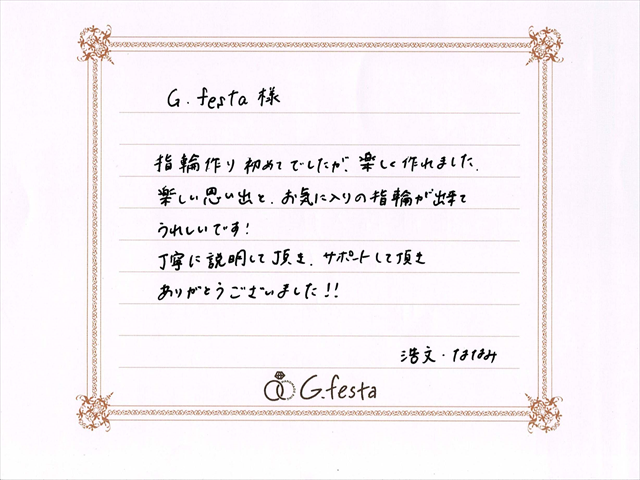 G. festa 様
指輪作り初めてでしたが、楽しく作れました。
楽しい思い出と、お気に入りの指輪が出来て
うれしいです!
丁寧に説明して頂き、サポートして頂き
ありがとうございました!!
浩文・ななみ
G.festa